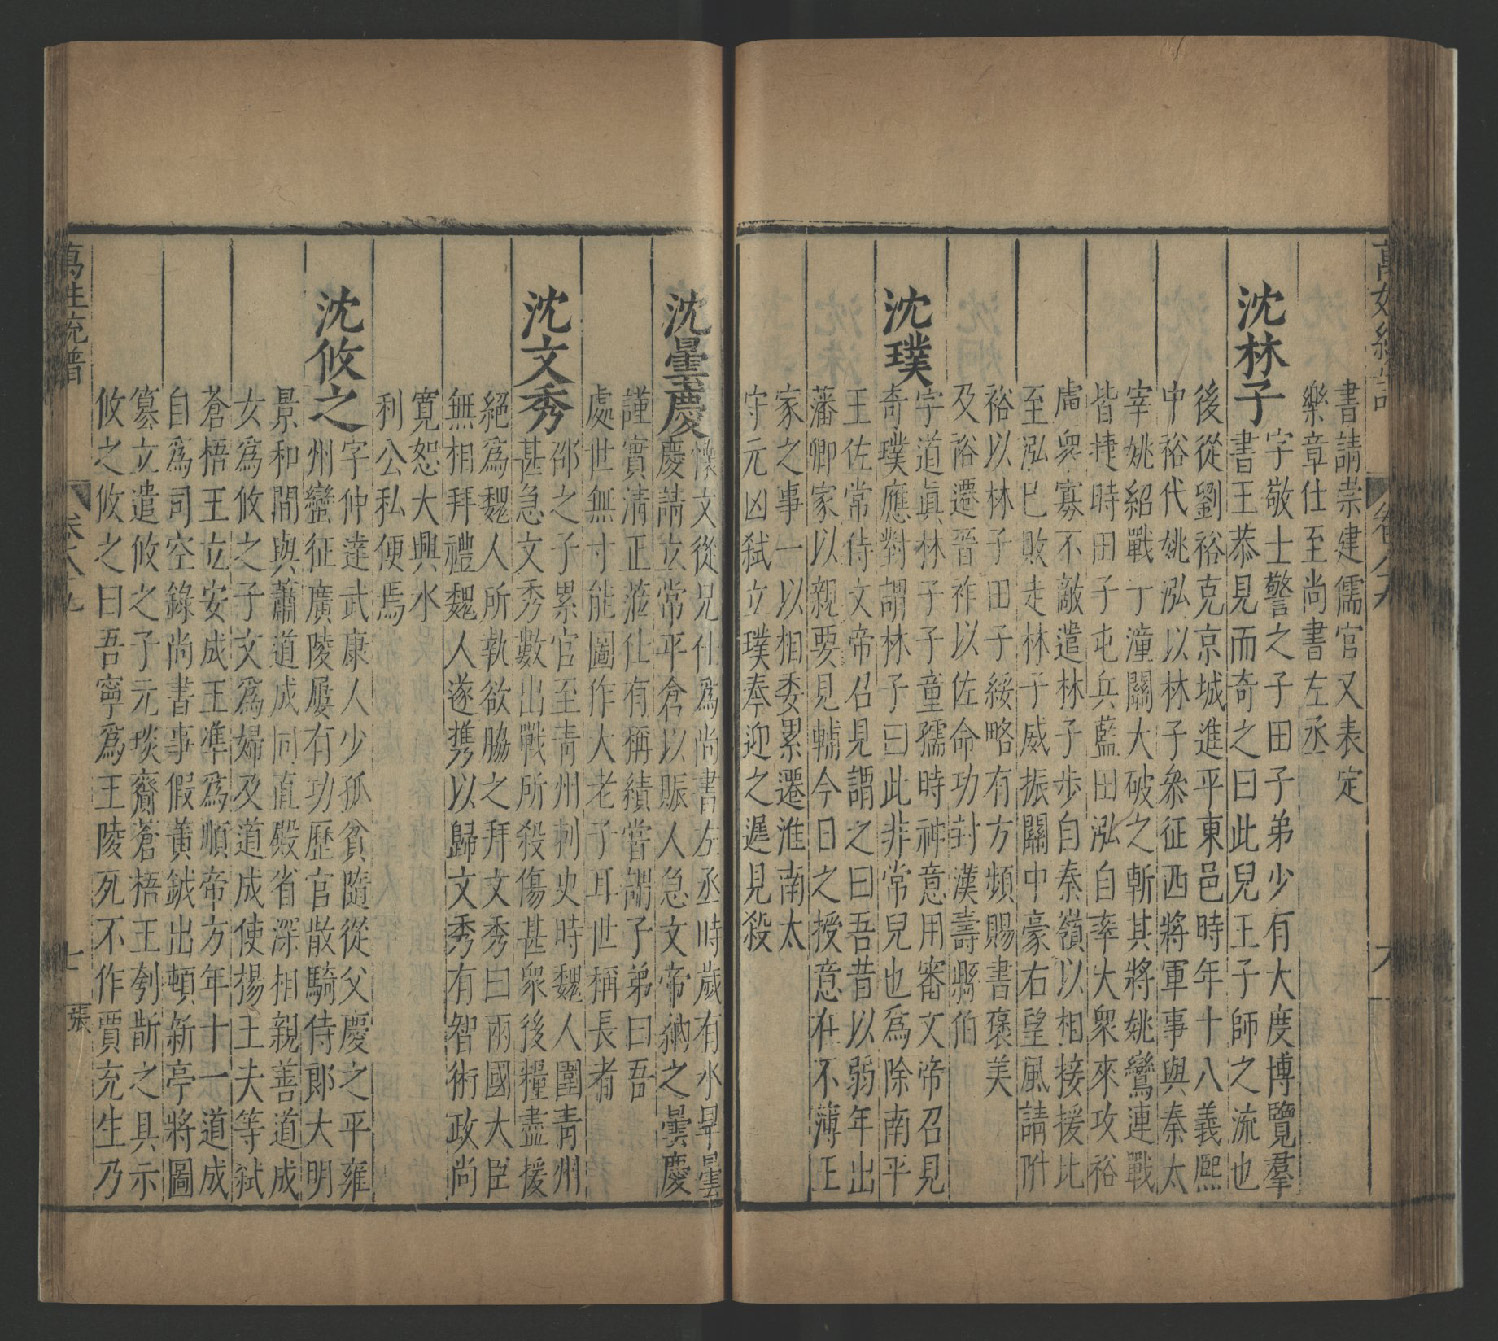 書請崇建儒官又表定
樂章仕至尚書左丞
沈林子
字敬士警之子田子弟少有大度博覽羣
書王恭見而奇之曰此兒王子師之流也
後從劉裕克京城進平東邑時年十八義熙
中裕代姚泓以林子叅征西將軍事與秦太
宰姚紹戰丁潼關大破之斬其將姚鸞連戰
皆捷時田子屯兵藍田泓自率大衆來攻裕
慮衆寡不敵遣林子步自秦嶺以相接援比
至泓巳敗走林子威振關中豪右望風請附
裕以林子田子綏略有方頻賜書襃美
及裕遷晉祚以佐命功封漢壽縣伯
沈璞
字道眞林子子童孺時神意用審文帝召見
奇璞應對謂林子曰此非常兒也爲除南平
王佐常侍文帝召見謂之曰吾昔以弱年出
藩卿家以親要見輔今日之授意在不薄王
家之事一以相委累遷淮南太
守元凶弑立璞奉迎之遲見殺
沈曇慶
懷文從兄仕爲尚書左丞時歲有水旱曇
慶請立常平倉以賑人急文帝納之曇慶
謹實淸正蒞仕有稱績嘗謂子弟曰吾
處世無寸能圖作大老子耳世稱長者
沈文秀
邵之子累官至青州刺史時魏人圍青州
甚急文秀數出戰所殺傷甚衆後糧盡援
絕爲魏人所執欲脇之拜文秀曰兩國大臣
無相拜禮魏人遂携以歸文秀有智術政尚
寛恕大興水
利公私便焉
沈攸之
字仲達武康人少孤貧隨從父慶之平雍
州蠻征廣陵屢有功歷官散騎侍郎大明
景和間與蕭道成同直殿省深相親善道成
女爲攸之子文爲婦及道成使楊王夫等弑
蒼梧王立安成王準爲順帝方年十一道成
自爲司空錄尚書事假黃鉞出頓新亭將圖
簒立遣攸之子元琰齎蒼梧王刳斮之具示
攸之攸之曰吾寧爲王陵死不作賈充生乃
萬姓統譜
卷八九
七
張